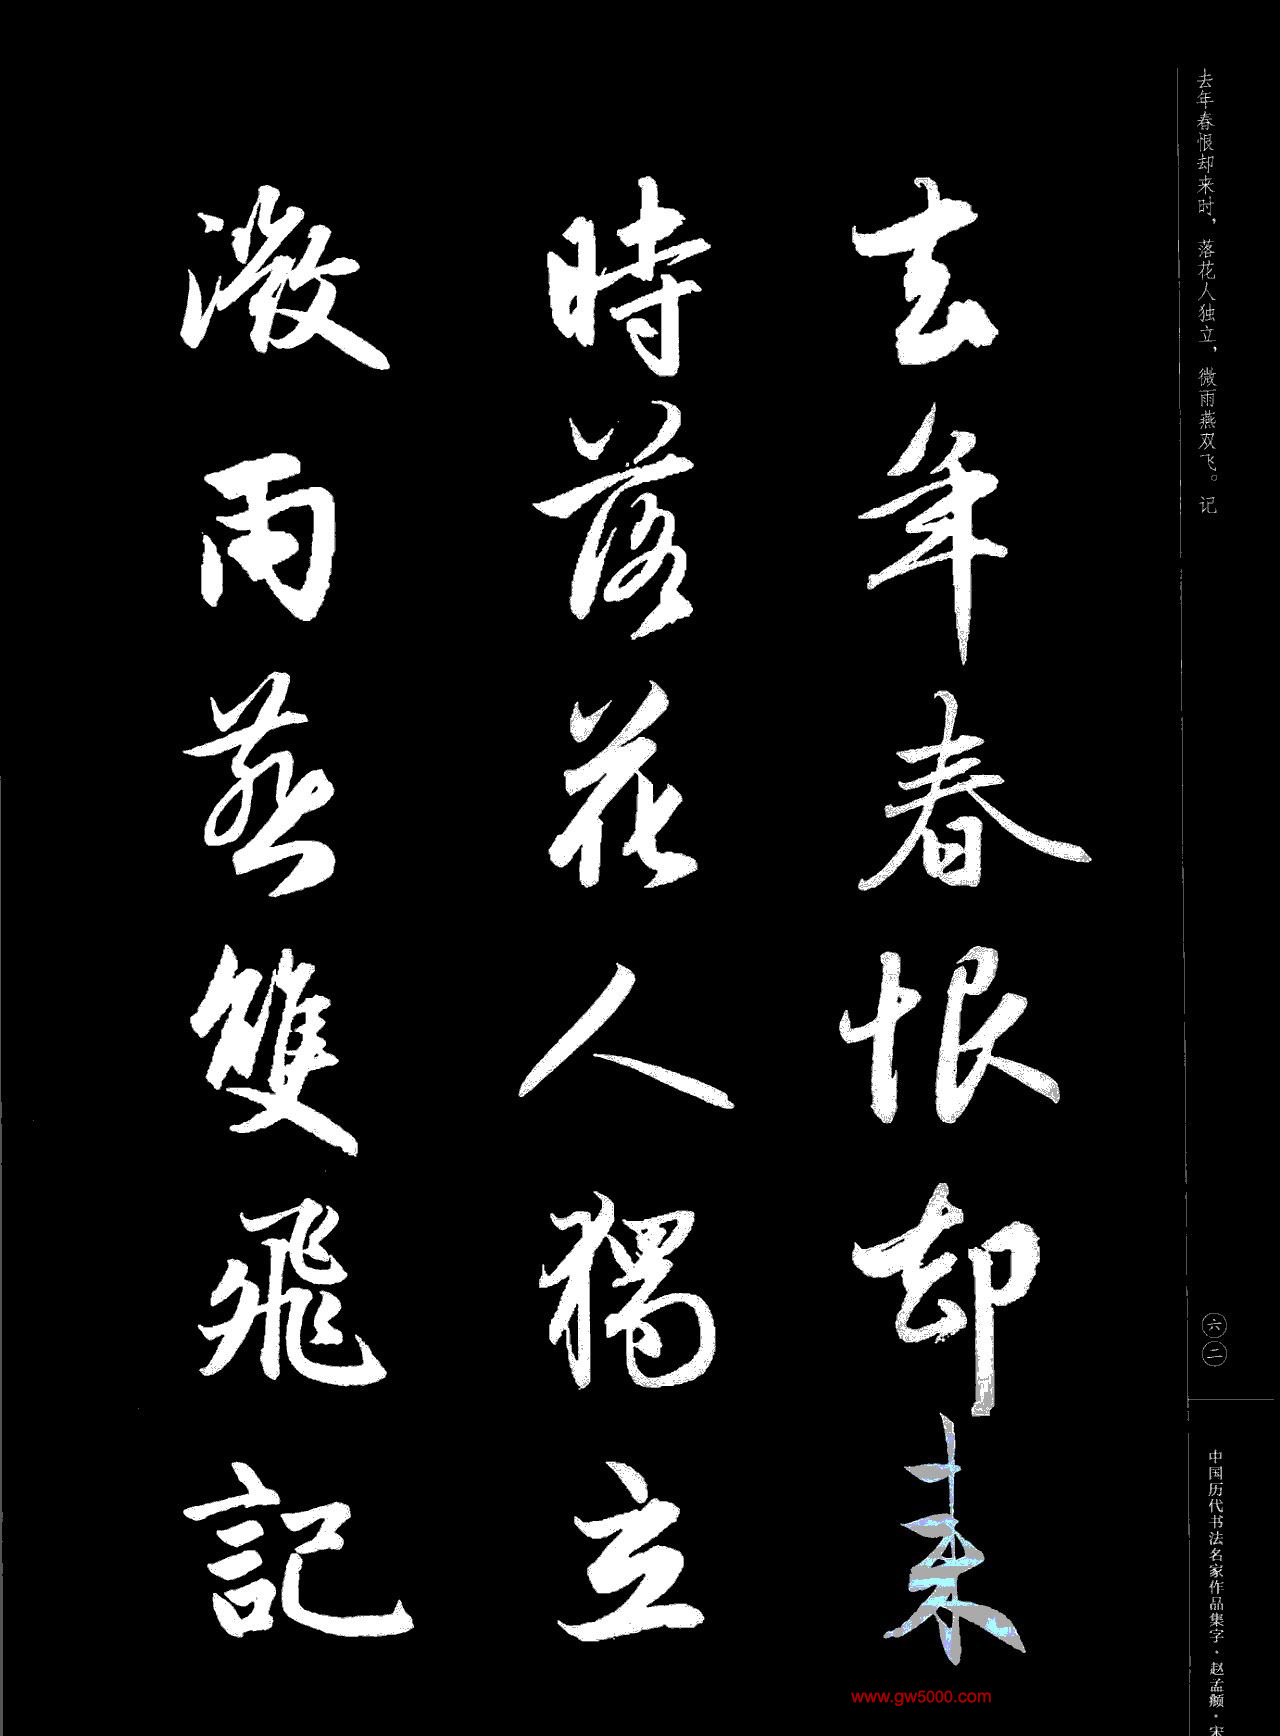 去年春恨却来时，落花人独立，微雨燕双飞。记
去年春恨却来
時落花人獨立
微雨燕雙飛記
六二
中国历代书法名家作品集字·赵孟頫·宋
www.gw5000.com